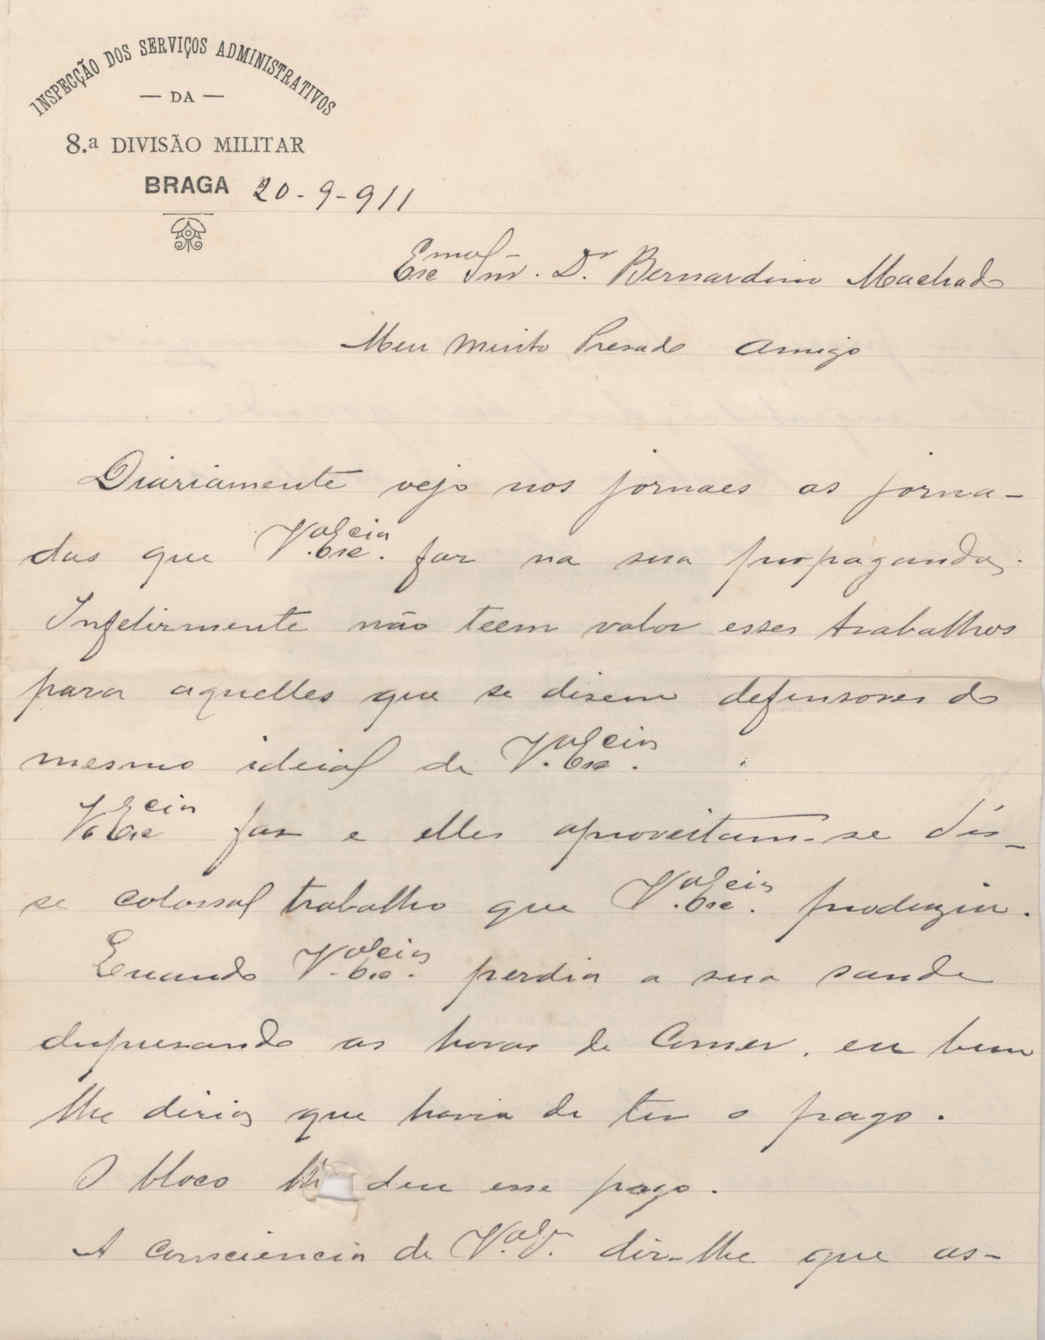 INSPECÇÃO DOS SERVIÇOS ADMINISTRATIVOS
— DA —
8.ª DIVISÃO MILITAR
BRAGA 20-9-911
Exmo Snr. Dr Bernardino Machado
Meu Muito Presado Amigo
Diariamente vejo nos jornaes as jorna-
das que V.a Excia. faz na sua propaganda.
Infelizmente não teem valor esses trabalhos
para aquelles que se dizem defensores do
mesmo ideial de V.a Excia.
V.a Excia faz e elles aproveitam-se dés-
se colossal trabalho que V.a Excia. produziu.
Quando V.a Excia. perdia a sua saude
despresando as horas de Comer, eu bem
lhe dizia que havia de ter o pago.
O bloco deu esse pago.
A Consciencia de V.a Ex. dir-lhe que as-